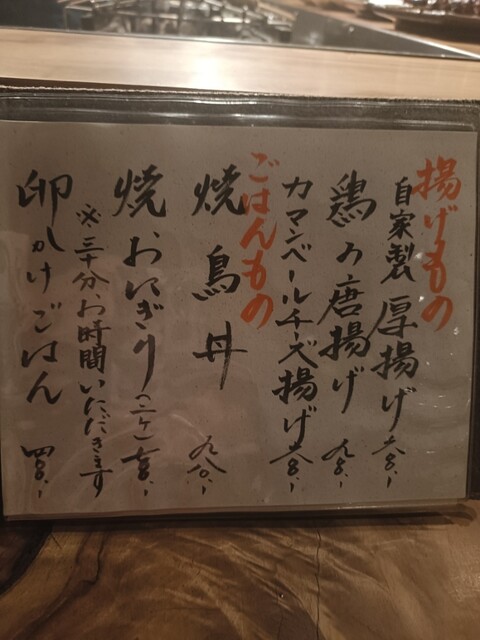 揚げもの
自家製厚揚げ 六八〇.-
鶏の唐揚げ 九八〇.-
カマンベールチーズ揚げ 六八〇.-
ごはんもの
焼鳥丼 九八〇.-
焼おにぎり(二ケ)
※三十分お時間いただきます
卵かけごはん